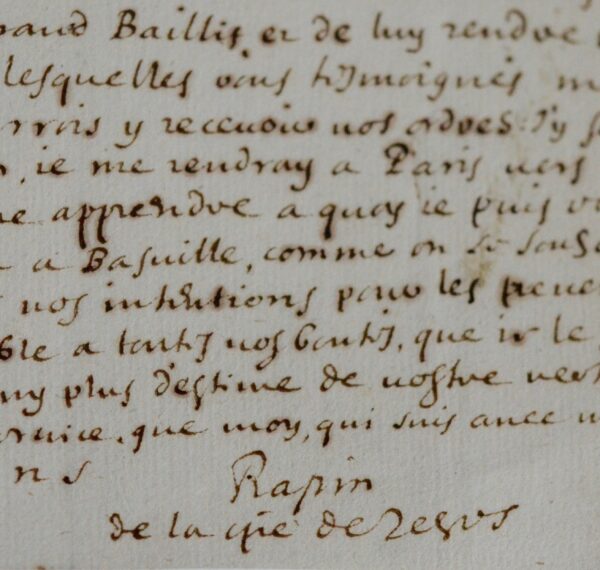 Baillif et de luy rendre
lesquelles vous tesmoignés
y recevoir vos ordres. J'y
ie me rendray a Paris vers
apprendre a quoy ie puis
a Basville, comme on se
vos intentions pour les
a toutes vos bontés, que
plus d'estime de vostre
que moy, qui suis avec
Rapin
de la cpie de Jesus